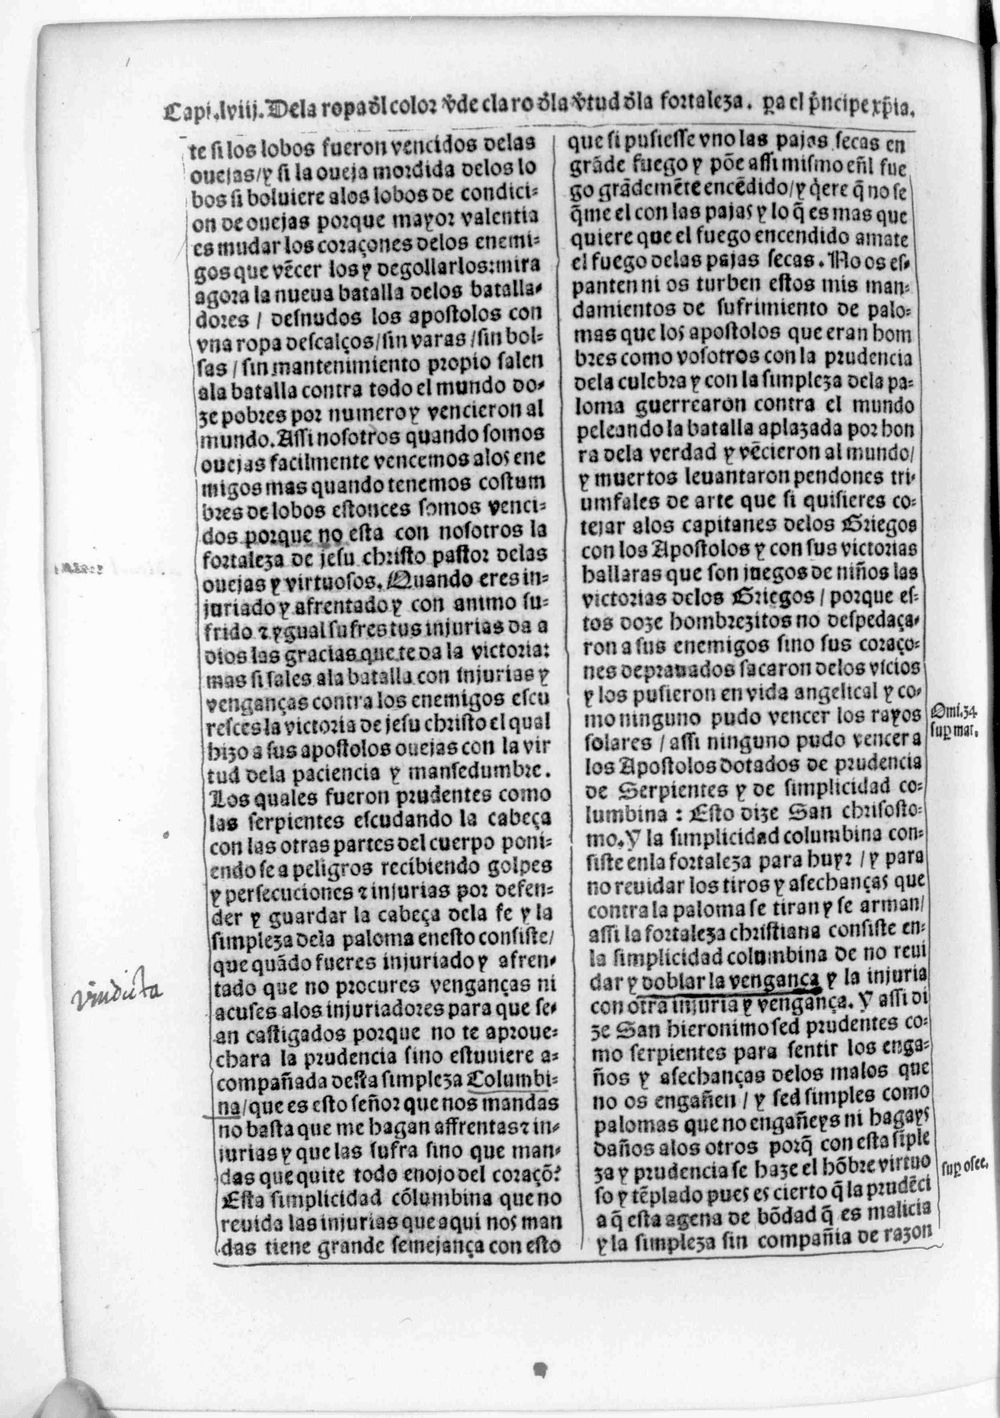 Capi.lviij. Dela ropa d̃l color ṽde claro d̃la ṽtud d̃la fortaleza. ꝑa el p̃ncipe xp̃ia.
te si los lobos fueron vencidos delas
ouejas/y si la oueja mordida delos lo
bos si boluiere alos lobos de condici-
on de ouejas porque mayor valentia
es mudar los coraçones delos enemi-
gos que vẽcer los y degollarlos: mira
agora la nueua batalla delos batalla-
dores / desnudos los apostolos con
vna ropa descalços/sin varas/sin bol-
sas/sin mantenimiento propio salen
ala batalla contra todo el mundo do-
ze pobres por numero y vencieron al
mundo. Assi nosotros quando somos
ouejas facilmente vencemos alos ene
migos mas quando tenemos costum
bres de lobos estonces somos venci-
dos porque no esta con nosotros la
fortaleza de jesu christo pastor delas
ouejas y virtuosos. Quando eres in-
juriado y afrentado y con animo su-
frido ⁊ ygual sufres tus injurias da a
dios las gracias que te da la victoria:
mas si sales ala batalla con injurias y
venganças contra los enemigos escu
resces la victoria de jesu christo el qual
hizo a sus apostolos ouejas con la vir
tud dela paciencia y mansedumbre.
Los quales fueron prudentes como
las serpientes escudando la cabeça
con las otras partes del cuerpo poni-
endo se a peligros recibiendo golpes
y persecuciones ⁊ injurias por defen-
der y guardar la cabeça dela fe y la
simpleza dela paloma enesto consiste/
que quãdo fueres injuriado y afren-
tado que no procures venganças ni
acuses alos injuriadores para que se-
an castigados porque no te aproue-
chara la prudencia sino estuuiere a-
compañada desta simpleza Columbi-
na/que es esto señor que nos mandas
no basta que me hagan affrentas ⁊ in-
jurias y que las sufra sino que man-
das que quite todo enojo del coraçõ?
Esta simplicidad cõlumbina que no
reuida las injurias que aqui nos man
das tiene grande semejança con esto
vindicta
que si pusiesse vno las pajas secas en
grãde fuego y põe assi mismo eñl fue
go grãdemẽte encẽdido/y q̃ere q̃ no se
q̃me el con las pajas y lo q̃ es mas que
quiere que el fuego encendido amate
el fuego delas pajas secas. No os es-
panten ni os turben estos mis man-
damientos de sufrimiento de palo-
mas que los apostolos que eran hom
bres como vosotros con la prudencia
dela culebra y con la simpleza dela pa-
loma guerrearon contra el mundo
peleando la batalla aplazada por hon
ra dela verdad y vẽcieron al mundo/
y muertos leuantaron pendones tri-
umfales de arte que si quisieres co-
tejar alos capitanes delos Griegos
con los Apostolos y con sus victorias
hallaras que son juegos de niños las
victorias delos Griegos / porque es-
tos doze hombrezitos no despedaça-
ron a sus enemigos sino sus coraço-
nes deprauados sacaron delos vicios
y los pusieron en vida angelical y co-
mo ninguno pudo vencer los rayos
solares / assi ninguno pudo vencer a
los Apostolos dotados de prudencia
de Serpientes y de simplicidad co-
lumbina : Esto dize San chrisosto-
mo. Y la simplicidad columbina con-
siste enla fortaleza para huyr / y para
no reuidar los tiros y asechanças que
contra la paloma se tiran y se arman/
assi la fortaleza christiana consiste en-
la simplicidad columbina de no reui
dar y doblar la vengança y la injuria
con otra injuria y vengança. Y assi di
ze San hieronimo sed prudentes co-
mo serpientes para sentir los enga-
ños y asechanças delos malos que
no os engañen / y sed simples como
palomas que no engañeys ni hagays
daños alos otros porq̃ con esta sĩple
za y prudencia se haze el hõbre virtuo
so y tẽplado pues es cierto q̃ la prudẽci
a q̃ esta agena de bõdad q̃ es malicia
y la simpleza sin compañia de razon
Omi.34
suꝑ mat.
suꝑ osee.